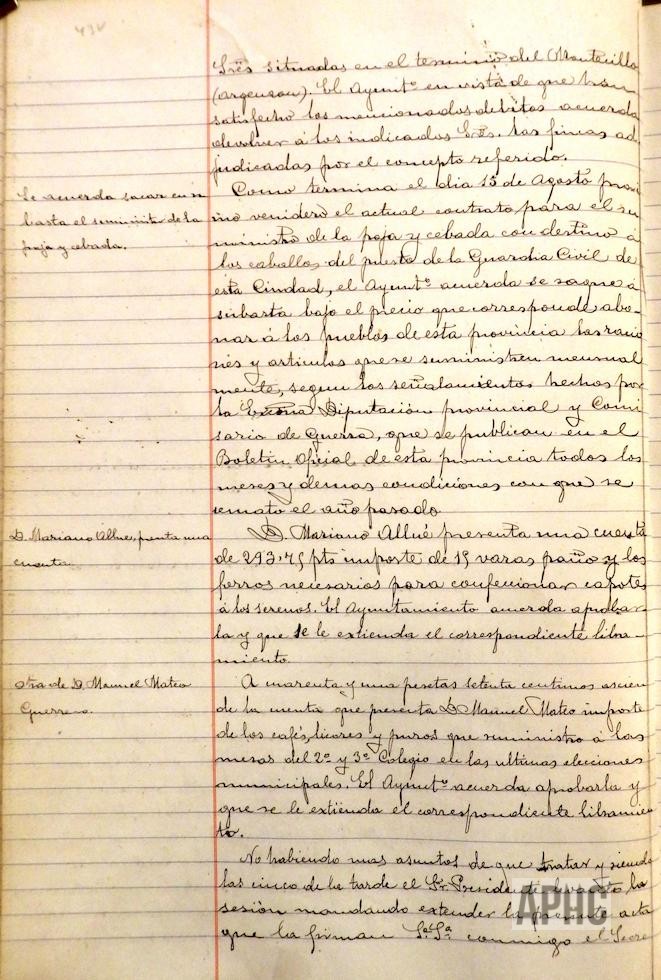 Srēs situadas en el termino del Montecillo
(Argensou). El Ayuntº en vista de que han
satisfecho los mencionados debitos acuerda
devolver á los indicados Srēs. las fincas ad
judicadas por el concepto referido.
Se acuerda sacar en su
basta el suministro de la
paja y cebada.
Como termina el dia 15 de Agosto proxi
mo venidero el actual contrato para el su
ministro de la paja y cebada con destino á
los caballos del puesto de la Guardia Civil de
esta Ciudad, el Ayuntº acuerda se saque á
subasta bajo el precio que corresponde abo-
nar á los pueblos de esta provincia las racio
nes y articulos que se suministren mensual
mente, segun los señalamientos hechos por
la Excma Diputación provincial y Comi
sario de Guerra, que se publican en el
Boletin Oficial de esta provincia todos los
meses y demas condiciones con que se
remato el año pasado
D. Mariano Allue, prenta una
cuenta
D. Mariano Allué presenta una cuenta
de 293'75 pts importe de 15 varas paño y los
forros necesarios para confeccionar capotes
á los serenos. El Ayuntamiento acuerda aprobar
la y que se le extienda el correspondiente libra-
miento.
otra de D. Manuel Mateo
Guerrero.
A cuarenta y una pesetas setenta centimos ascien
de la cuenta que presenta D. Manuel Mateo importe
de los cafés, licores y puros que suministro á las
mesas del 2º y 3º Colegio en las ultimas elecciones
municipales. El Ayuntº acuerda aprobarla y
que se le extienda el correspondiente libramien
to.
No habiendo mas asuntos de que tratar y siendo
las cinco de la tarde el Sr. Presidente levantó la
sesión mandando extender la presente acta
que la firman Sª Sª conmigo el Secre
APHC